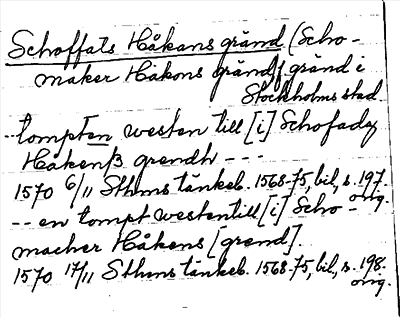 Schoffats Håkans gränd (Scho-
maker Håkons gränd), gränd i
Stockholms stad
--tompten westen till [i] Schofadz
Håkenß grendh ---
1570 6/11 Sthms tänkeb. 1568-75, bil, s. 197.
orig.
-- en tompt westentill [i] Scho-
macher Håkens [grend].
1570 17/11 Sthms tänkeb. 1568-75, bil, s. 198.
orig.